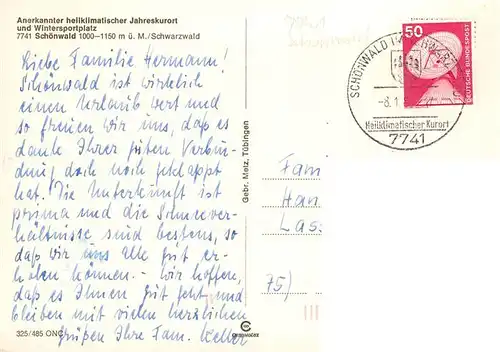 Anerkannter heilklimatischer Jahreskurort
und Wintersportplatz
7741 Schönwald 1000–1150 m ü. M./Schwarzwald
Liebe Familie Hermann!
Schönwald ist wirklich
einen Urlaub wert und
so freuen wir uns, daß es
dank Ihrer guten Verbin-
dung doch noch geklappt
hat. Die Unterkunft ist
prima und die Schneever-
hältnisse sind bestens, so
daß wir uns alle gut er-
holen können. – Wir hoffen,
daß es Ihnen gut geht und
bleiben mit vielen herzlichen
Grüßen Ihre Fam.
325/485 ONC
Gebr. Metz, Tübingen
50
DEUTSCHE BUNDESPOST
SCHÖNWALD
-8.1
Heilklimatischer Kurort
7741
Fam
Han
Las
75)